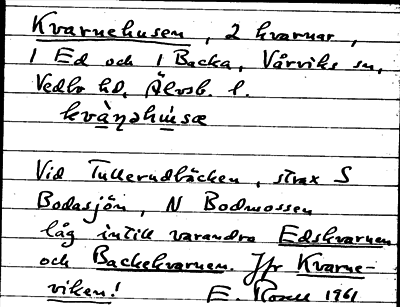 Kvarnehusen, 2 kvarnar,
1 Ed och 1 Backa, Vårviks sn,
Vedbo hd, Älvsb. l.
kvàṇəhúsæ
Vid Tullerudbäcken, strax S
Bodasjön, N Bodmossen
låg intill varandra Edskvarnen
och Backekvarnen. Jfr Kvarne-
viken! E. 1961